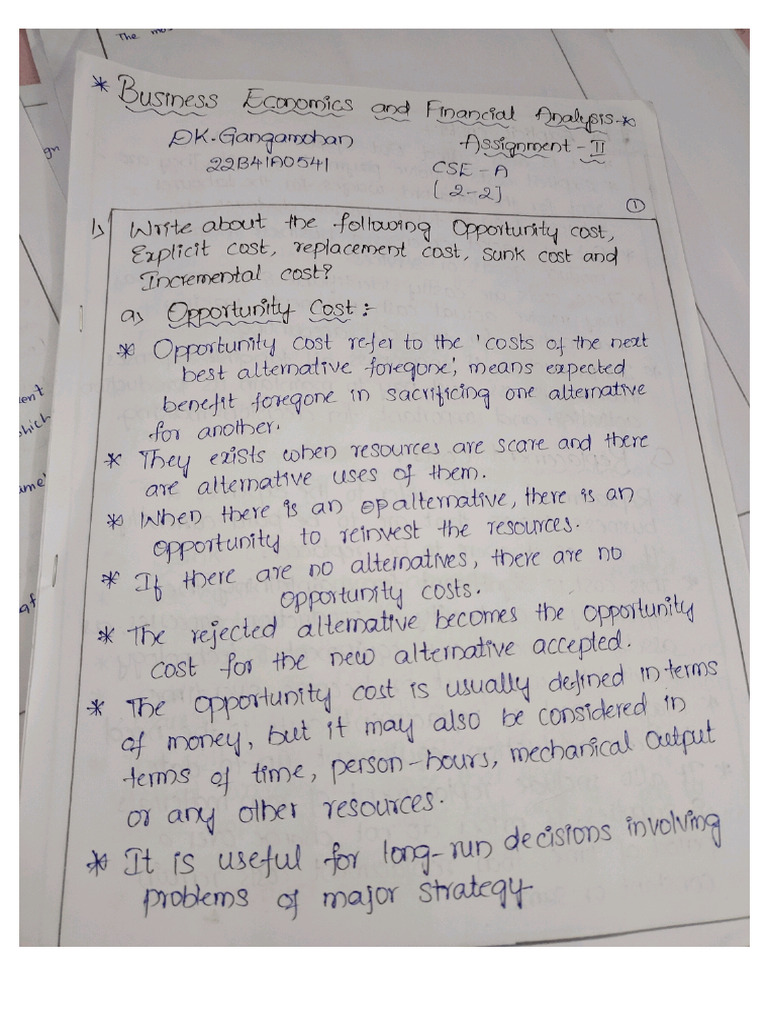 The mos
* Business Economics and Financial Analysis *
D.K. Gangamohan
Assignment - II
22B41A0541
CSE - A
[2-2]
1
gn
1) Write about the following Opportunity cost,
Explicit cost, replacement cost, sunk cost and
Incremental cost?
a) Opportunity Cost :-
* Opportunity cost refer to the 'costs of the next
best alternative foregone', means expected
benefit foregone in sacrificing one alternative
for another.
* They exists when resources are scare and there
are alternative uses of them.
* When there is an op alternative, there is an
opportunity to reinvest the resources.
* If there are no alternatives, there are no
opportunity costs.
* The rejected alternative becomes the opportunity
cost for the new alternative accepted.
* The opportunity cost is usually defined in terms
of money, but it may also be considered in
terms of time, person-hours, mechanical output
or any other resources.
* It is useful for long-run decisions involving
problems of major strategy.
ent
hich
ame'
af